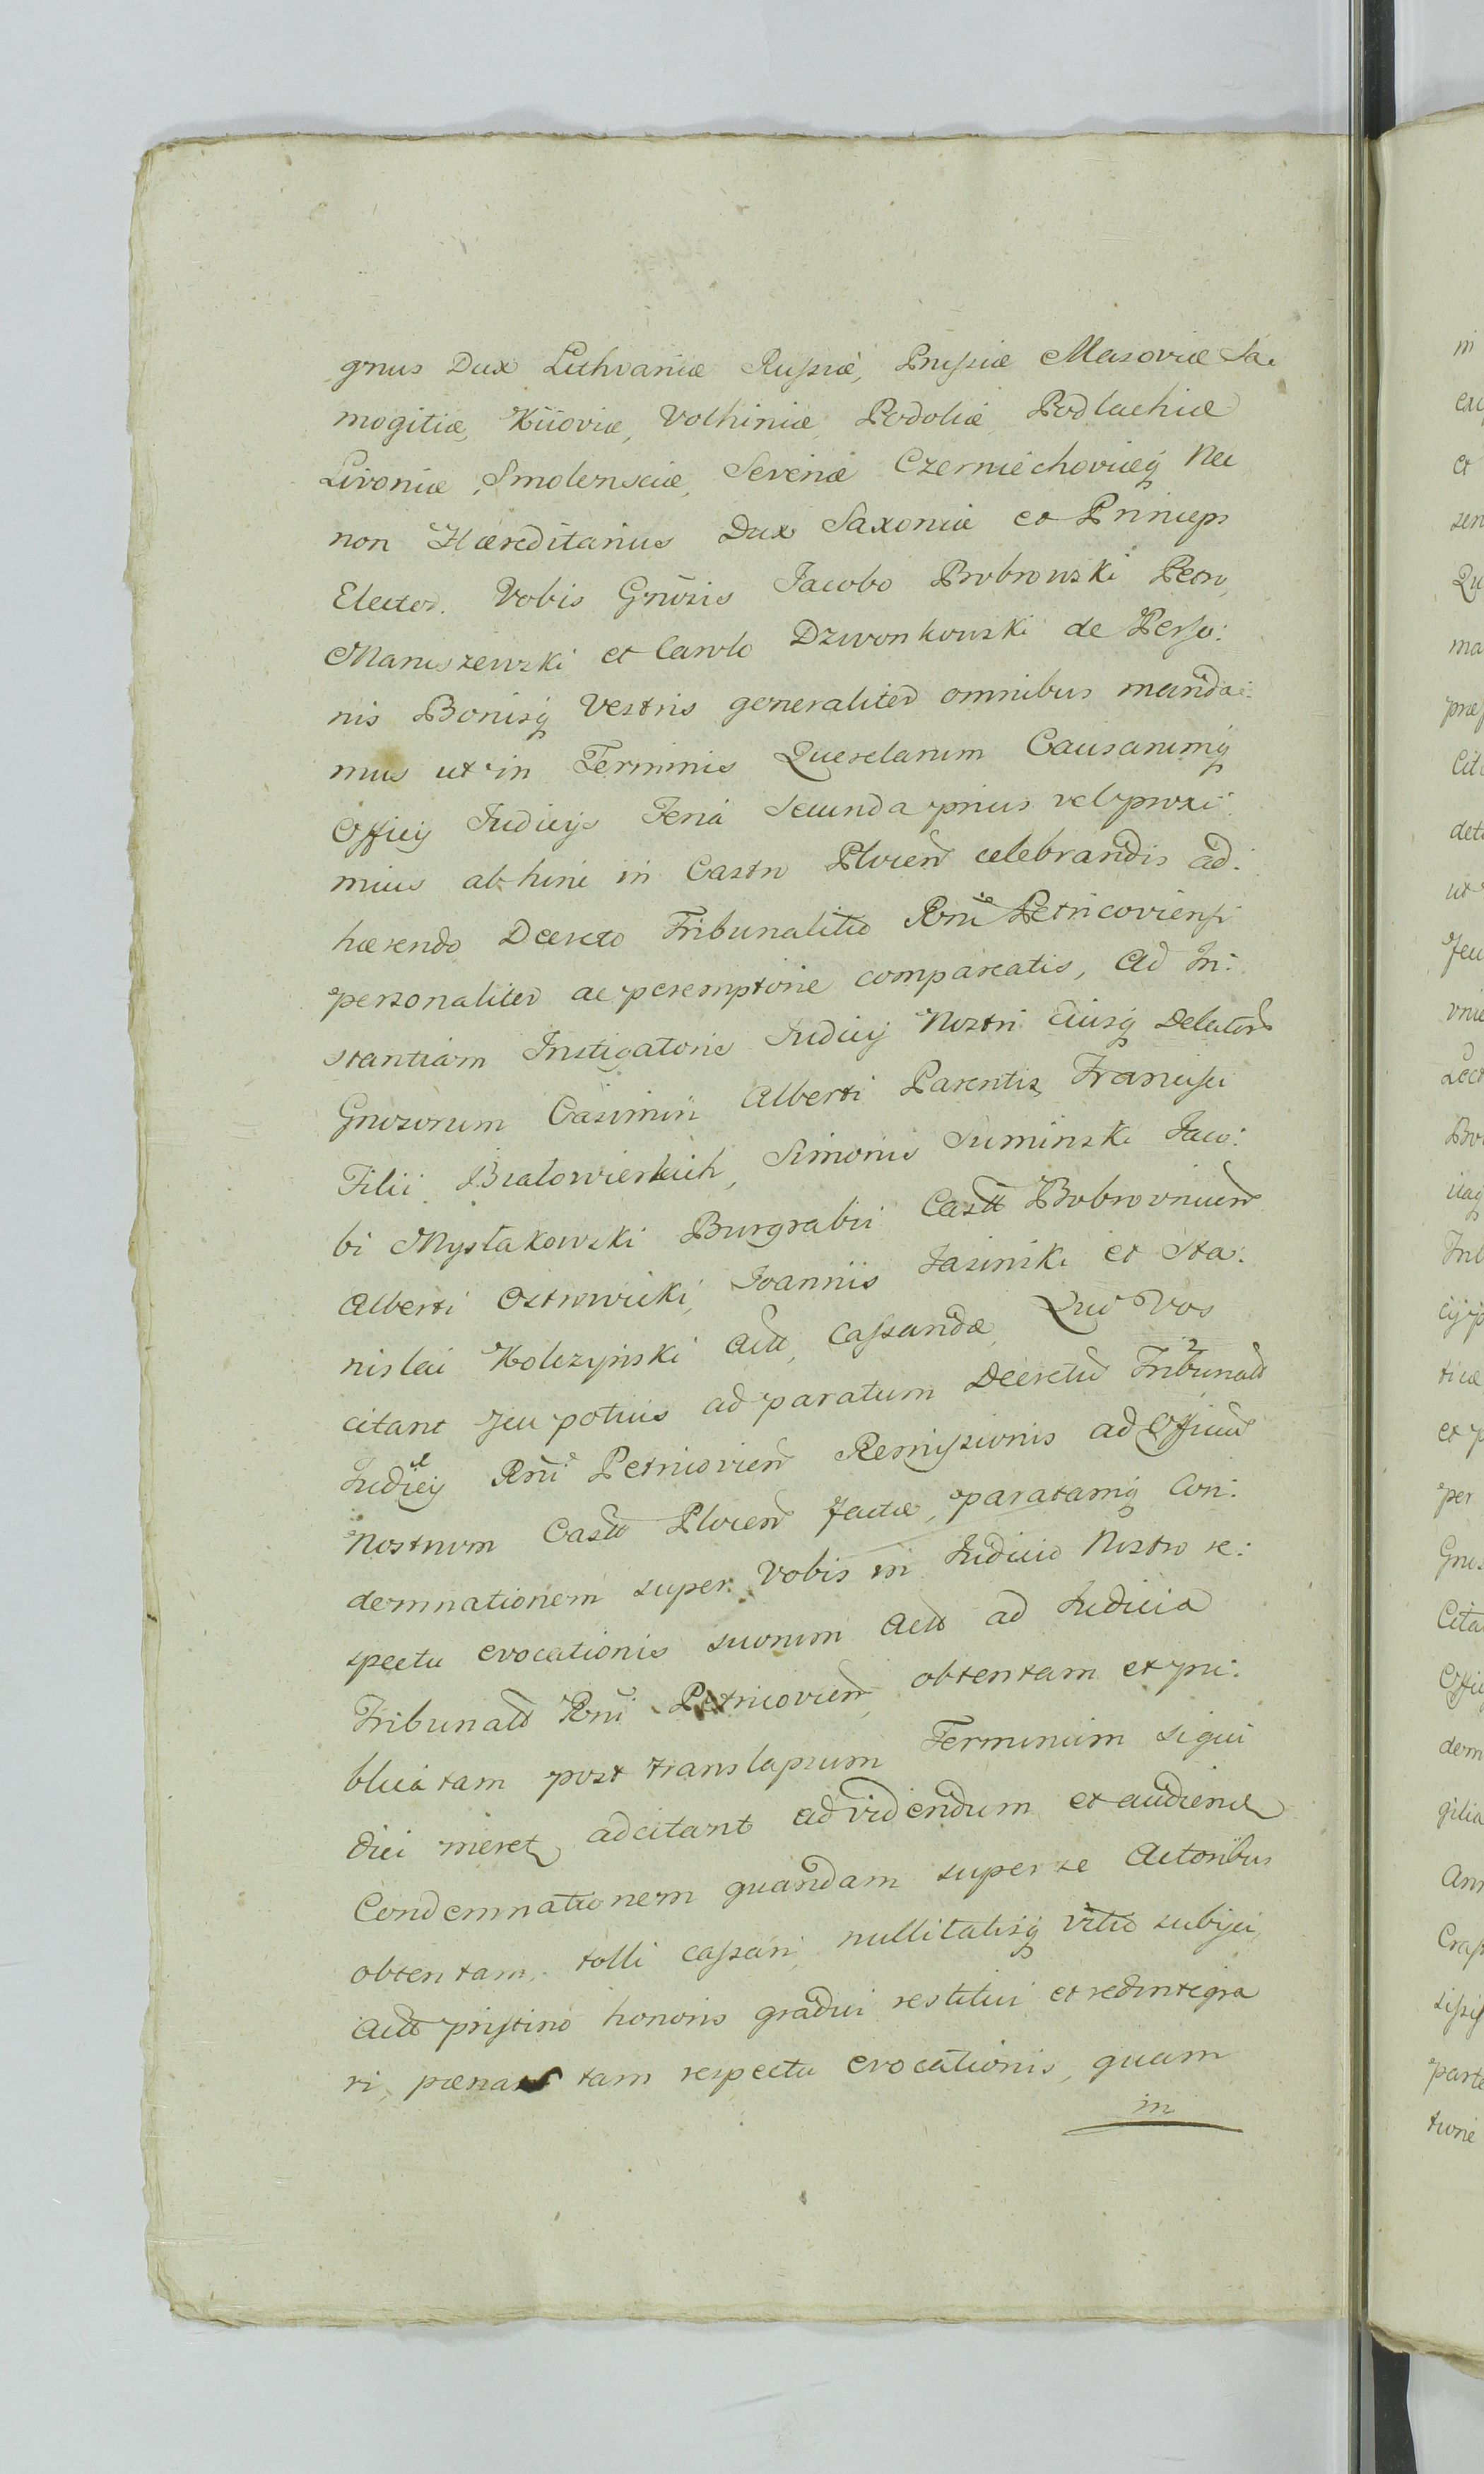 gnus Dux Lithvaniæ Russiæ, Prussiæ Masoviæ Sa:
mogitiæ, Kiioviæ, Volhiniæ, Podoliæ, Podlachiæ
Livoniæ, Smolensciæ, Severiæ Czerniechoviæq́ Nec
non Hæreditarius Dux Saxoniæ et Princeps
Elector. Vobis Gñrosis Jacobo Bobrowski Petro,
Maruszewski et Carolo Dzwonkowski de Perso:
nis Bonisq́ Vestris generaliter omnibus manda:
mus ut in Terminis Querelarum Causarumq́
Officij Judicijs Feria Secunda prius vel proxi:
mius abhinc in Castro Plocen̄ celebrandis ad:
hærendo Decreto Tribunalitio Rñi Petricoviensi
personaliter ac peremptorie compareatis, Ad In:
stantiam Instigatoris Judicij Nostri Eiusq́ Delator̄
Gñrosorum Casimiri Alberti Parentis, Francisci
Filii Białowieskich, Simonis Suminski Jaco:
bi Mysłakowski Burgrabii Castr̄ Bobrovnicen̄
Alberti Ostrowicki, Joannis Jasinski et Sta:
nislai Kolczynski Actt, Cassandæ, Qui Vos
citant seu potius ad paratum Decretū Tribunalt̄
Judicij Rñi Petricovien̄ Remissionis ad Officiū
Nostrum Castr̄ Plocen̄ factæ, paratamq́ Con:
demnationem super Vobis in Judicio Nostro re:
spectu evocationis suorum Actt ad Judicia
Tribunalt̄ Rñi Petricovien̄, obtentam et pu:
blicatam post translapsum Terminum siqui
dici meret, adcitant ad videndum et audiend̄
Condemnationem quandam super se Actoribus
obtentam, tolli cassari, nullitatisq́ vitio subijci,
Actt pristino honoris gradui restitui et redintegra
ri, pœnas tam respectu evocationis, quam
in